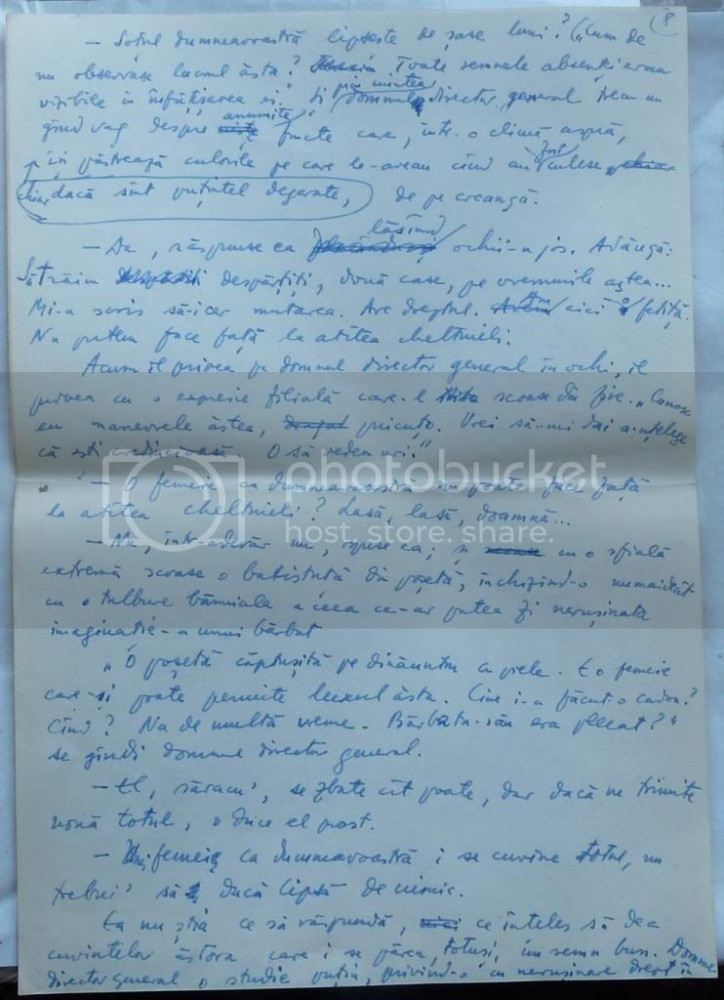 8
— Soțul dumneavoastră lipsește de șase luni? („Cum de
nu observase lucrul ăsta? Toate semnele absenței erau
vizibile în înfățișarea ei." Și prin mintea domnului director general trecu un
gînd vag despre anumite fructe care, într-o climă aspră,
își păstrează culorile pe care le-aveau cînd au fost culese,
chiar dacă sînt puțintel degerate, de pe creangă.
— Da, răspunse ea lăsînd ochii-n jos. Adăugă:
Să trăim despărțiți, două case, pe vremurile astea...
Mi-a scris să-i cer mutarea. Are dreptul. Avem aici o fetiță.
Nu putem face față la atîtea cheltuieli.
Acum îl privea pe domnul director general în ochi, îl
privea cu o expresie filială care-l scoase din fire. „Cunosc
eu manevrele ăstea, Vrei să-mi dai a-nțelege
că ești credincioasă. O să vedem noi."
— O femeie ca dumneavoastră nu poate face față
la atîtea cheltuieli? Lasă, lasă, doamnă...
— Nu, într-adevăr nu, spuse ea; și cu o sfială
extremă scoase o batistuță din poșetă, închizînd-o numaidecît
cu o tulbure bănuială a ceea ce-ar putea fi nerușinata
imaginație a unui bărbat
„O poșetă căptușită pe dinăuntru cu piele. E o femeie
care-și poate permite luxul ăsta. Cine i-a făcut-o cadou?
Cînd? Nu de multă vreme. Bărbatu-său era plecat?"
se gîndi domnul director general.
— El, săracu', se zbate cît poate, dar dacă ne trimite
nouă totul, o duce el prost.
— Unei femei ca dumneavoastră i se cuvine totul, nu
trebui' să ducă lipsă de nimic.
Ea nu știa ce să răspundă, ce înțeles să dea
cuvintelor ăstora care i se părea, totuși, un semn bun. Domnul
director general o studie puțin, privind-o cu nerușinare drept în
photobucket
host. store. share.